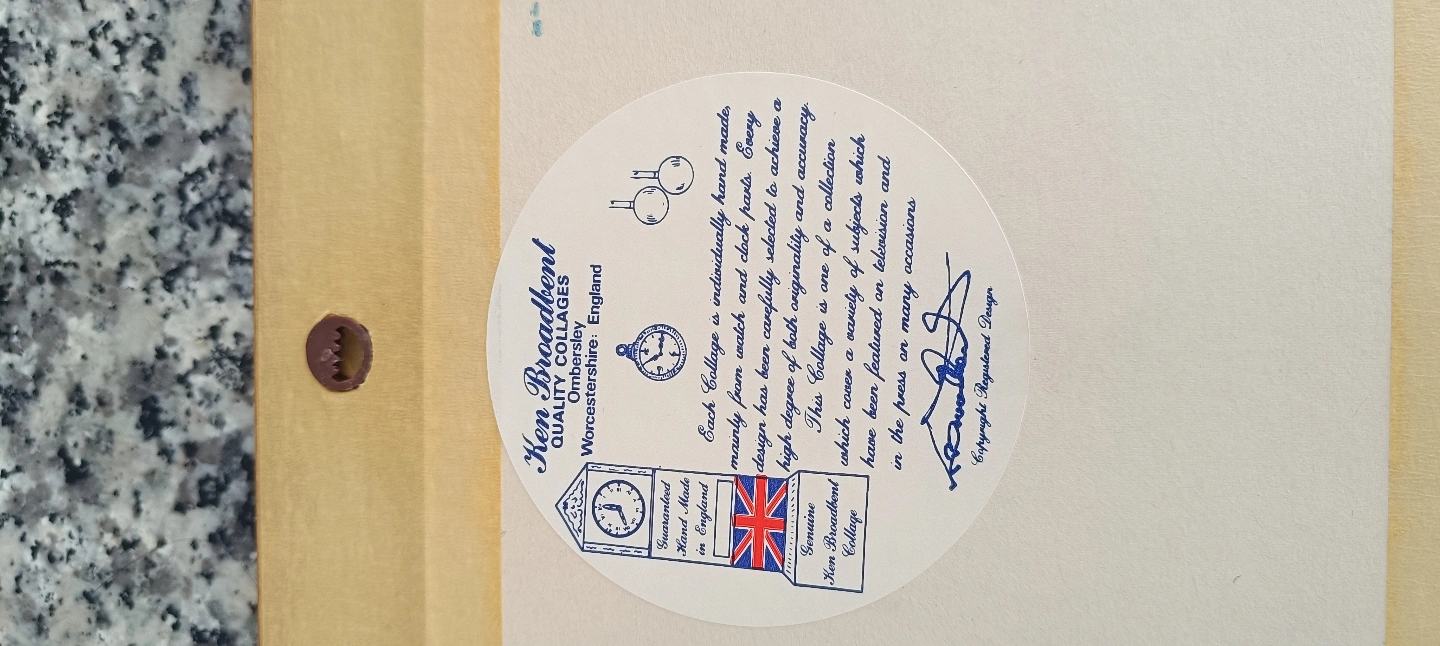 Ken Broadbent
QUALITY COLLAGES
Ombersley
Worcestershire: England
Each Collage is individually hand made,
mainly from watch and clock parts. Every
design has been carefully selected to achieve a
high degree of both originality and accuracy.
This Collage is one of a collection
which cover a variety of subjects which
have been featured on television and
in the press on many occasions
Copyright Registered Design
Guaranteed
Hand Made
in England
Genuine
Ken Broadbent
Collage